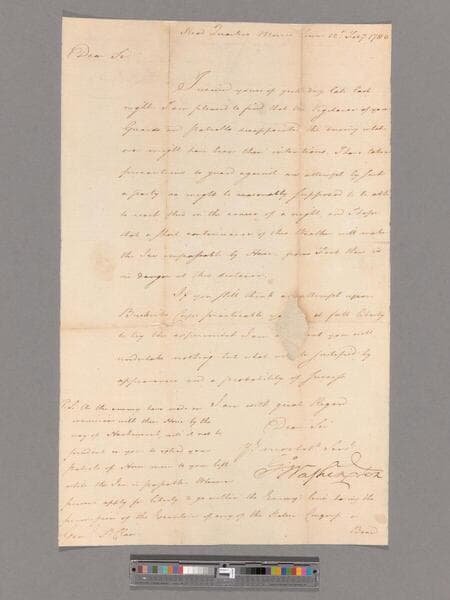 Head Quarters Morris Town 12th Feby 1780
Dear Sir
I received yours of yesterday late last
night. I am pleased to find that the vigilance of your
Guards and Patrols disappointed the enemy what-
ever might have been their intentions. I have taken
precautions to guard against an attempt by such
a party as might be reasonably supposed to be able
to reach this in the course of a night, and I hope
that a short continuance of this Weather will make
the Ice impassable by Horse, from Foot there is
no danger at this distance.
If you still think attempt upon
Cops practicable you at full liberty
to try the experiment I am you will
undertake nothing but what will justified by
appearances and a probability of success
I am with great Regard
Dear Sir
Yr most obt Servt
Go Washington
P.S. As the enemy have made an
excursion with their Horse by the
way of Hackensack, will it not be
prudent in you to extend your
patrols of Horse more to your left
while the Ice is passable
persons apply for liberty to go within the Enemy's lines having the
permission of the Executive of any of the States Congress or
Genl St Clair
Board